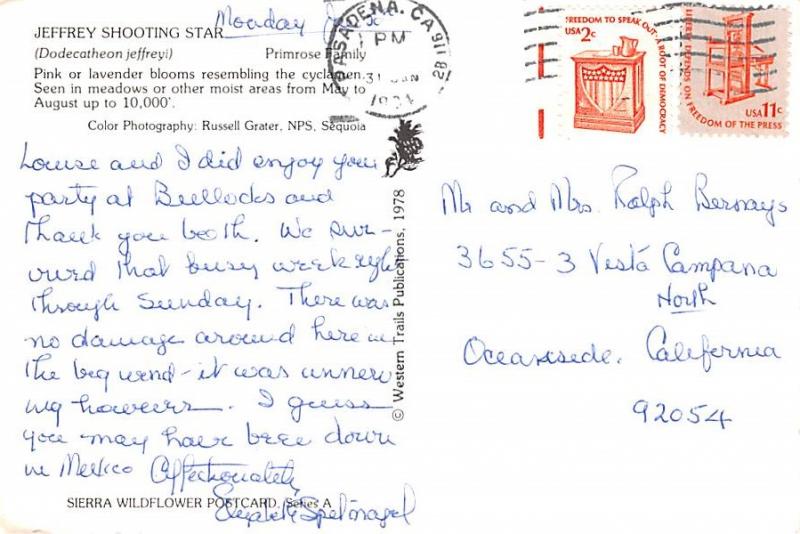 Monday
JEFFREY SHOOTING STAR
(Dodecatheon jeffreyi) Primrose Family
Pink or lavender blooms resembling the cyclamen.
Seen in meadows or other moist areas from May to
August up to 10,000'.
Color Photography: Russell Grater, NPS, Sequoia
Louise and I did enjoy your
party at Bullocks and
thank you both. We sur-
vived that busy week right
through Sunday. There was
no damage around here in
the big wind - it was unnerv
ing however. I guess
you may have been down
in Mexico Affectionately,
Spelmagel
SIERRA WILDFLOWER POSTCARD, Series A
© Western Trails Publications, 1978
PASADENA, CA 911
PM
31 JAN
FREEDOM TO SPEAK OUT-A ROOT OF DEMOCRACY
USA 2c
LIBERTY DEPENDS ON FREEDOM OF THE PRESS
USA 11c
Mr and Mrs. Ralph Bernays
3655-3 Vista Campana
North
Oceanside, California
92054